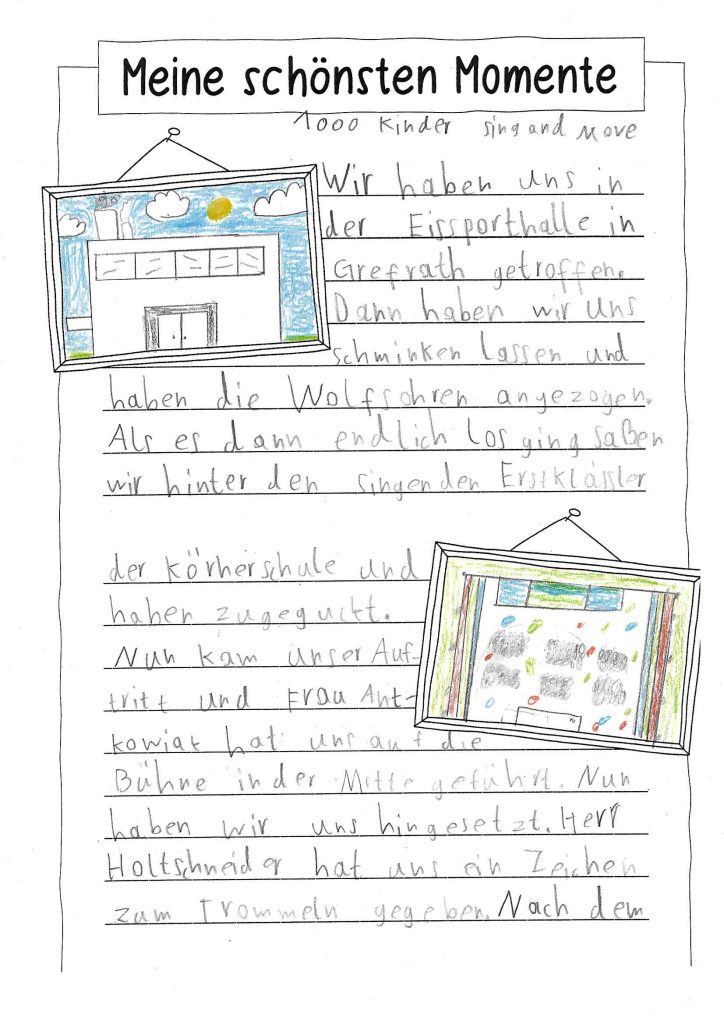 Meine schönsten Momente
1000 Kinder sing and Move
Wir haben uns in
der Eissporthalle in
Grefrath getroffen.
Dann haben wir uns
schminken lassen und
haben die Wolfsohren angezogen.
Als es dann endlich los ging saßen
wir hinter den singenden Erstklässler
der Körnerschule und
haben zugeguckt.
Nun kam unser Auf-
tritt und Frau Ant-
kowiak hat uns auf die
Bühne in der Mitte geführt. Nun
haben wir uns hingesetzt. Herr
Holtschneider hat uns ein Zeichen
zum Trommeln gegeben. Nach dem